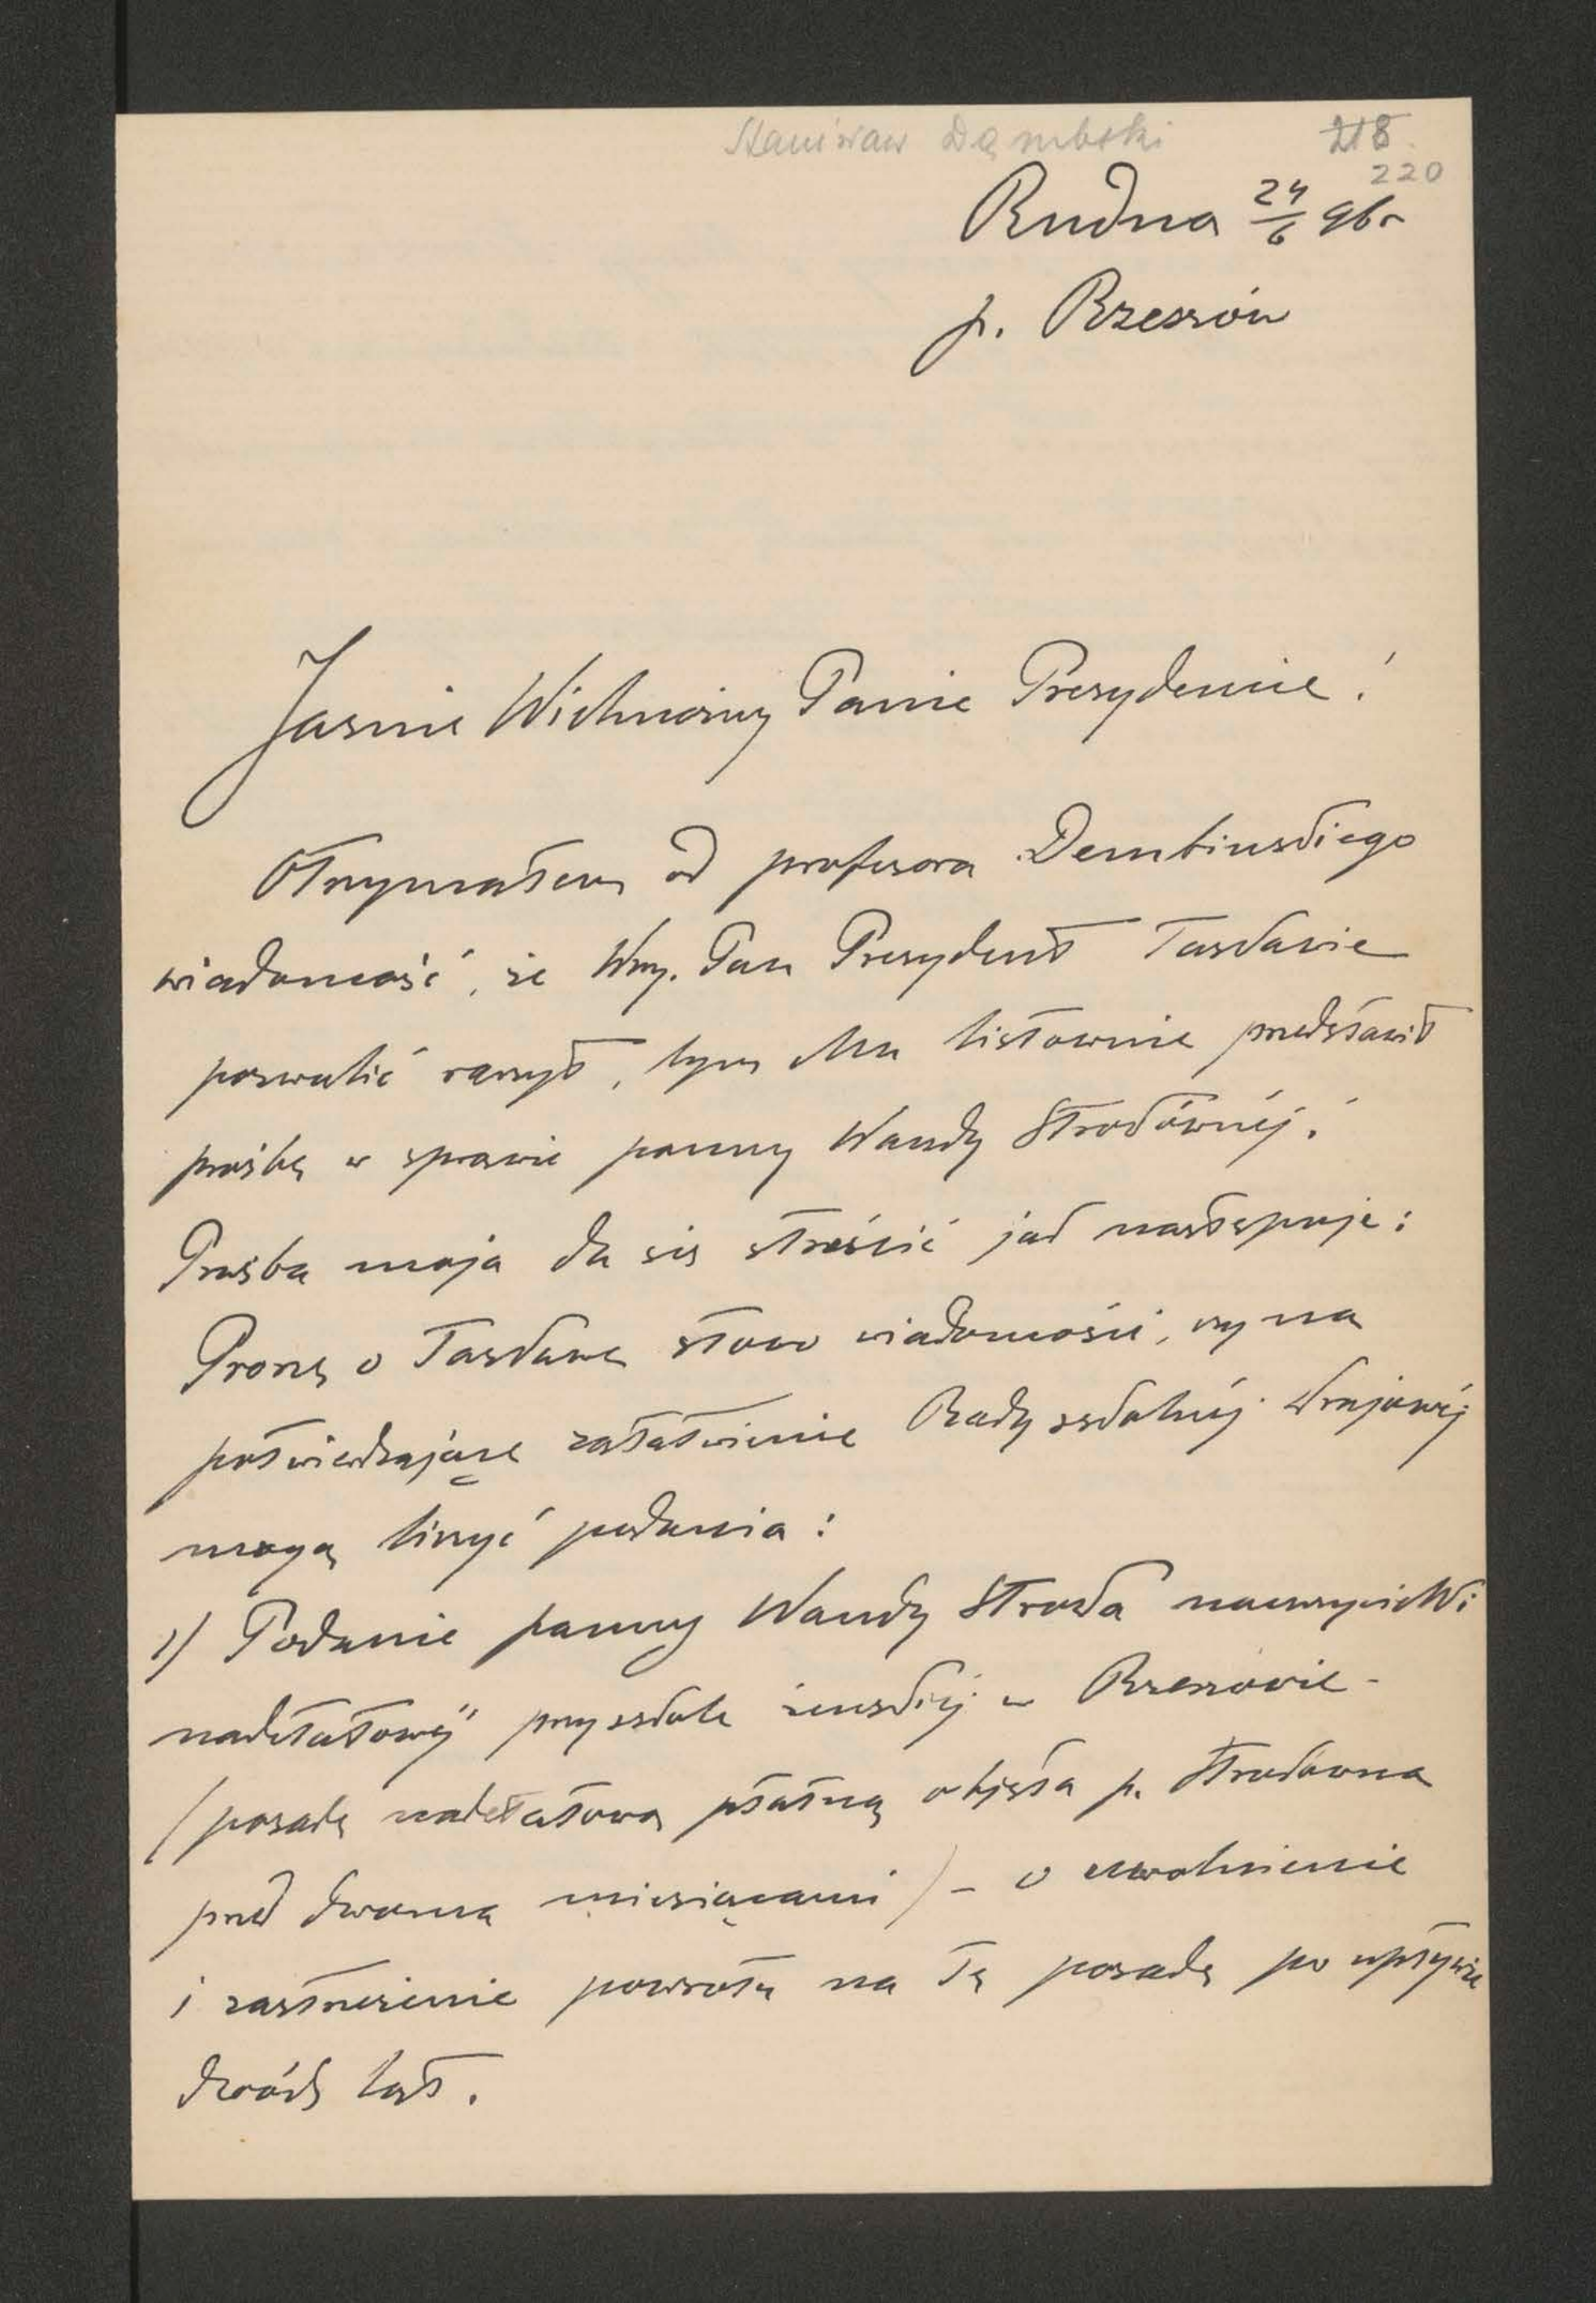 Stanisław Dąmbski 218
220
Rudna 24/6 96 r
p. Rzeszów
Jaśnie Wielmożny Panie Prezydencie!
Otrzymałem od profesora Dembinskiego
wiadomość, że Wny. Pan Prezydent łaskawie
pozwolić raczył, bym Mu listownie przedstawił
prośbę w sprawie panny Wandy Strokównéj.
Prośba moja da się streścić jak następuje:
Proszę o łaskawe słowo wiadomości, czy na
potwierdzające załatwienie Rady szkolnéj krajowéj
mogą liczyć podania:
1) Podanie panny Wandy Stroka nauczycielki
nadetatowéj przy szkole żeńskiéj w Rzeszowie -
(posadę nadetatową płatną objęła p. Strokówna
przed dwoma miesiącami) - o uwolnienie
i zastrzeżenie powrotu na tę posadę po upływie
dwóch lat.